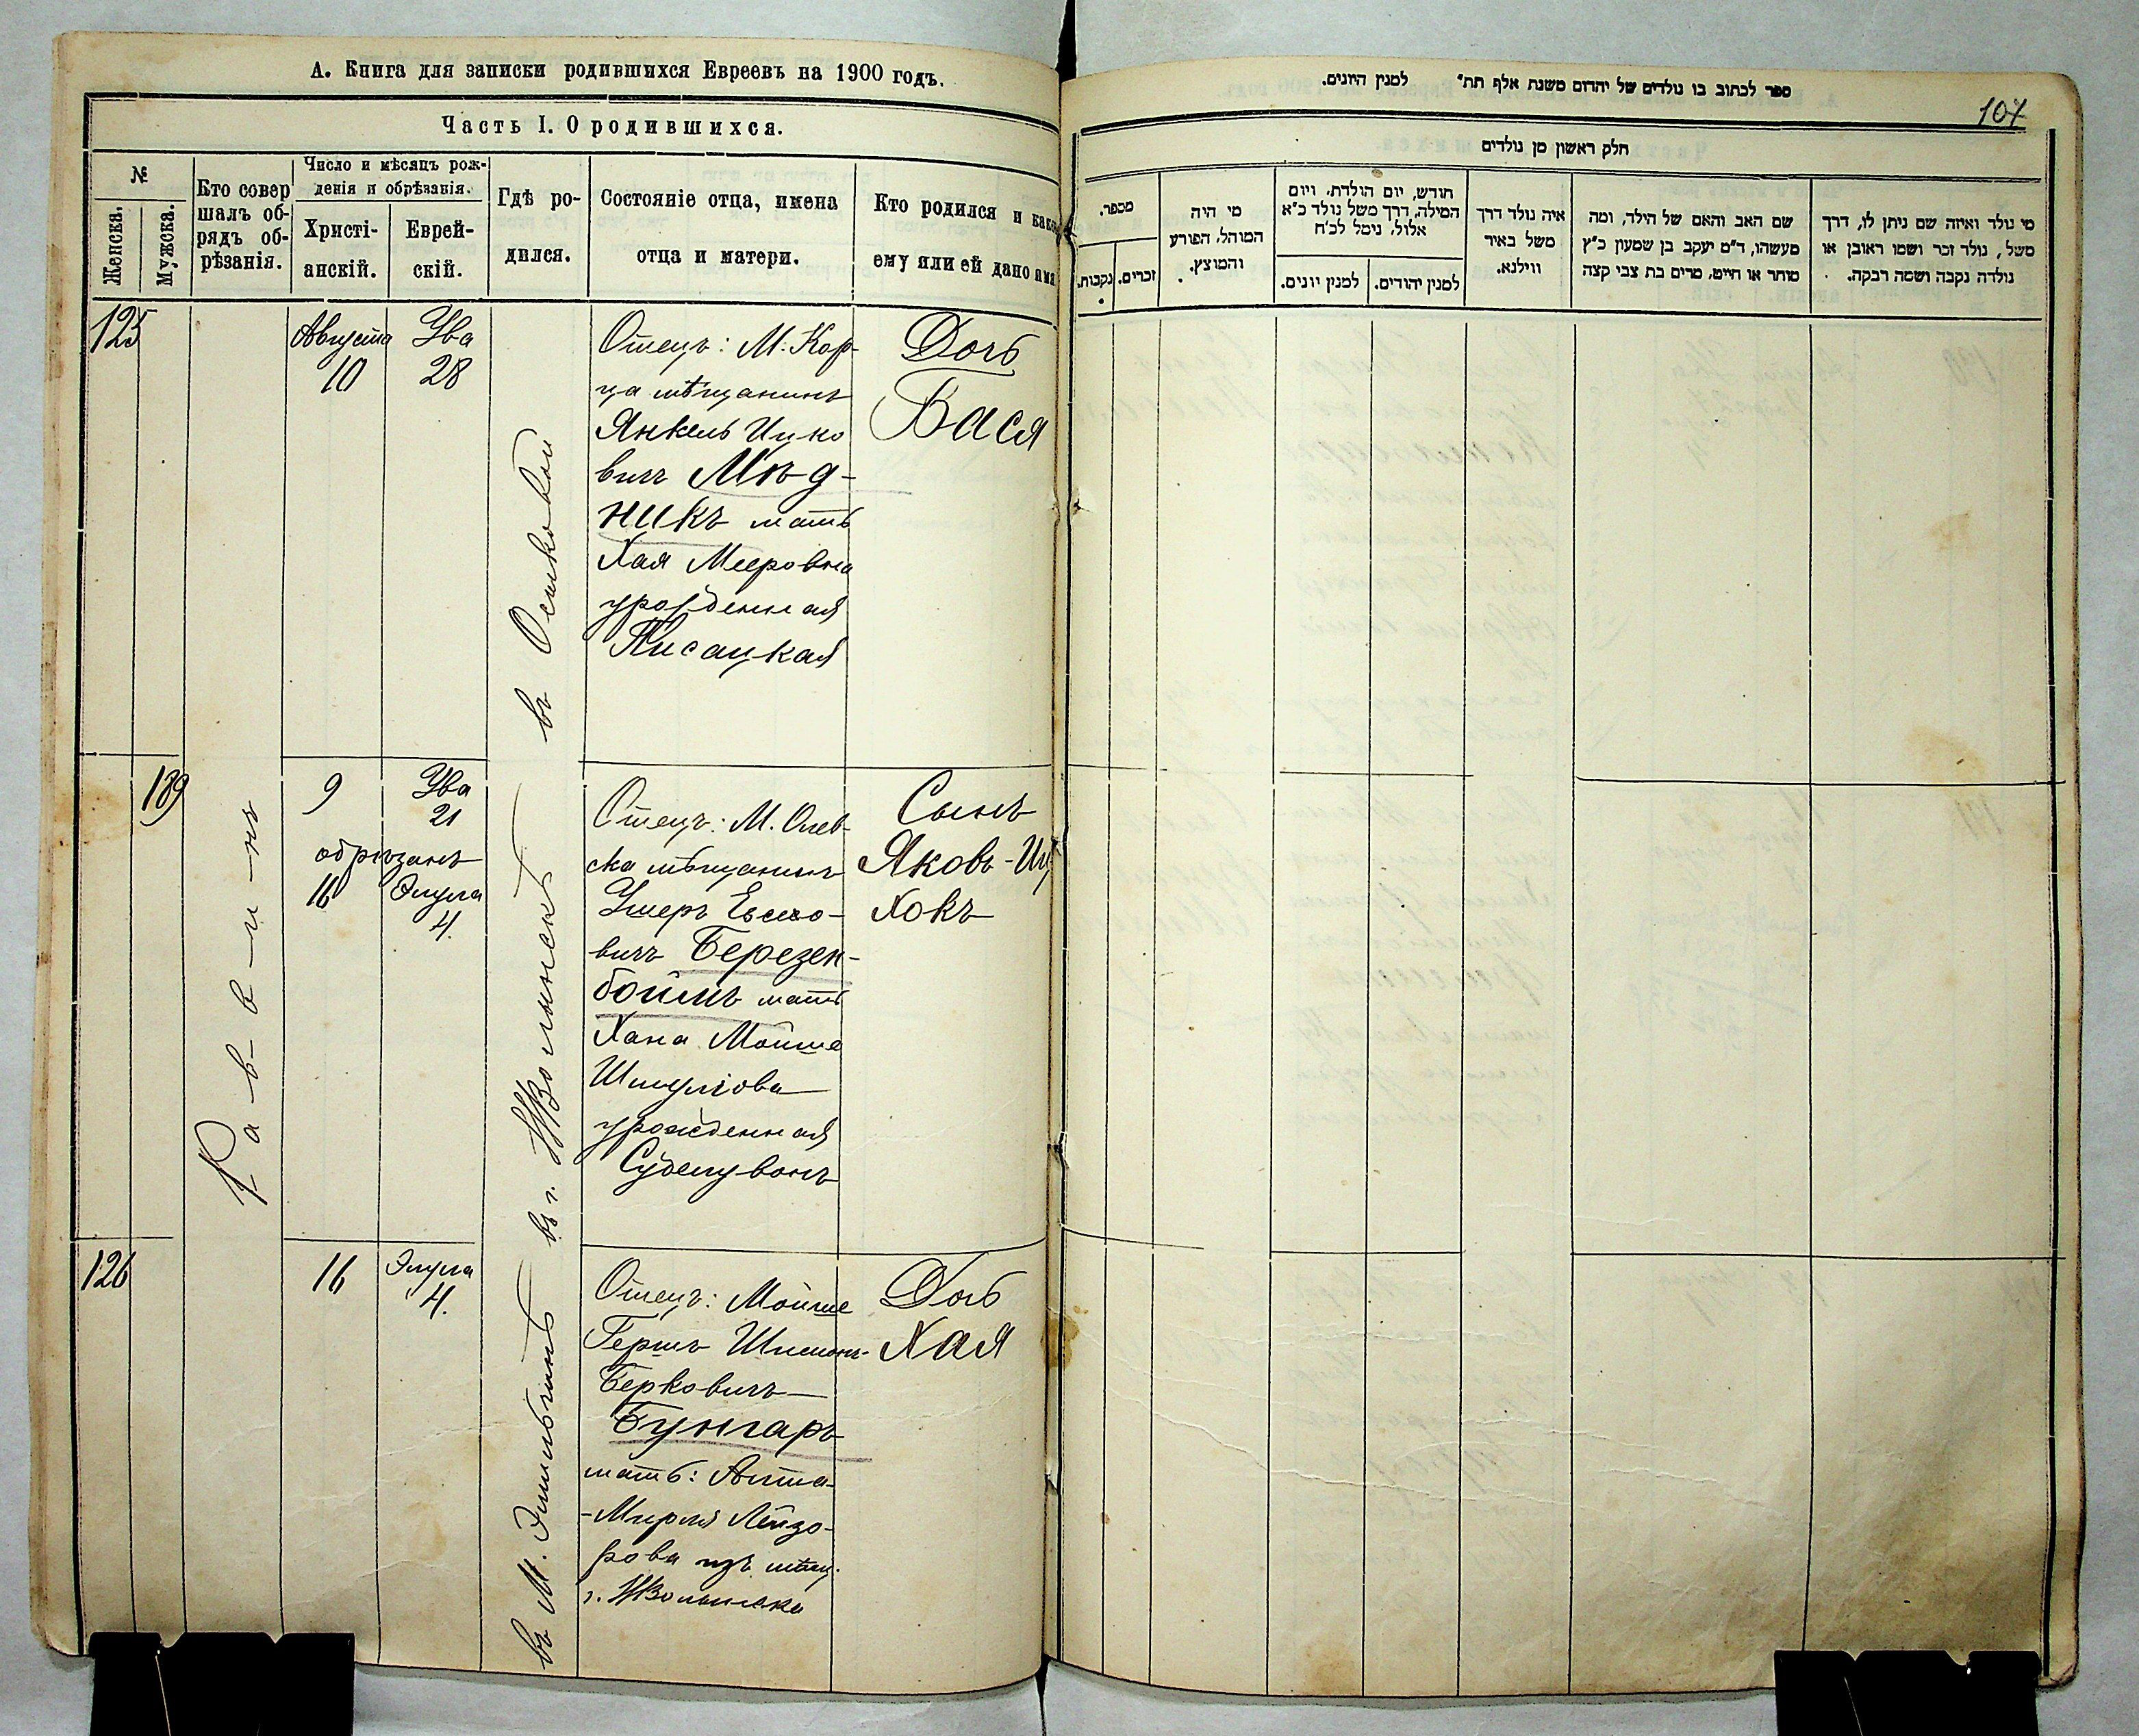 А. Книга для записки родившихся Евреевъ на 1900 годъ.
Часть I. О родившихся.
№
Женска.
Мужска.
Кто совер
шалъ об-
рядъ об-
рѣзанія.
Число и мѣсяцъ рож-
денія и обрѣзанія.
Христі-
анскій.
Еврей-
скій.
Гдѣ ро-
дился.
Состояніе отца, имена
отца и матери.
Кто родился и како
ему или ей дано имя
125
Августа
10
Ува
28
въ
Отецъ: М. Кор-
ца мѣщанинъ
Янкель Ицко
вичъ Мѣд-
никъ мать
Хая Мееровна
урожденная
Кисацкая
Дочь
Бася
189
Раввинъ
9
Ува
21
обрѣзанъ
16
Элула
4.
въ г. НВолынскѣ
Отецъ: М. Олев-
ска мѣщанинъ
Ушеръ
вичъ Березен-
боймъ мать
Хана Мойше
Шмулiова
урожденная
Сынъ
Яковъ-Иц
хокъ
126
16
Элула
4.
въ М. Эмильчинѣ
Отецъ: Мойше
Гершъ Шимонъ-
Берковичъ
Бунгаръ
мать:
-Мирля Лейзо-
рова изъ мѣщ.
г. НВолынска
Дочь
Хая
ספר לכתוב בו נולדים של יהדום משנת אלף תת״ למנין היונים.
107
חלק ראשון מן נולדים
מספר.
נקבות.
זכרים.
מי היה
המוהל, הפורע
והמוצץ.
חודש, יום הולדת, ויום
המילה, דרך משל נולד כ״א
אלול, נימל לכ״ח
למנין יונים.
למנין יהודים.
איה נולד דרך
משל באיר
ווילנא.
שם האב והאם של הילד, ומה
מעשהו, ד״מ יעקב בן שמעון כ״ץ
סוחר או חייט, מרים בת צבי קצה
מי נולד ואיזה שם ניתן לו, דרך
משל, נולד זכר ושמו ראובן או
נולדה נקבה ושמה רבקה.